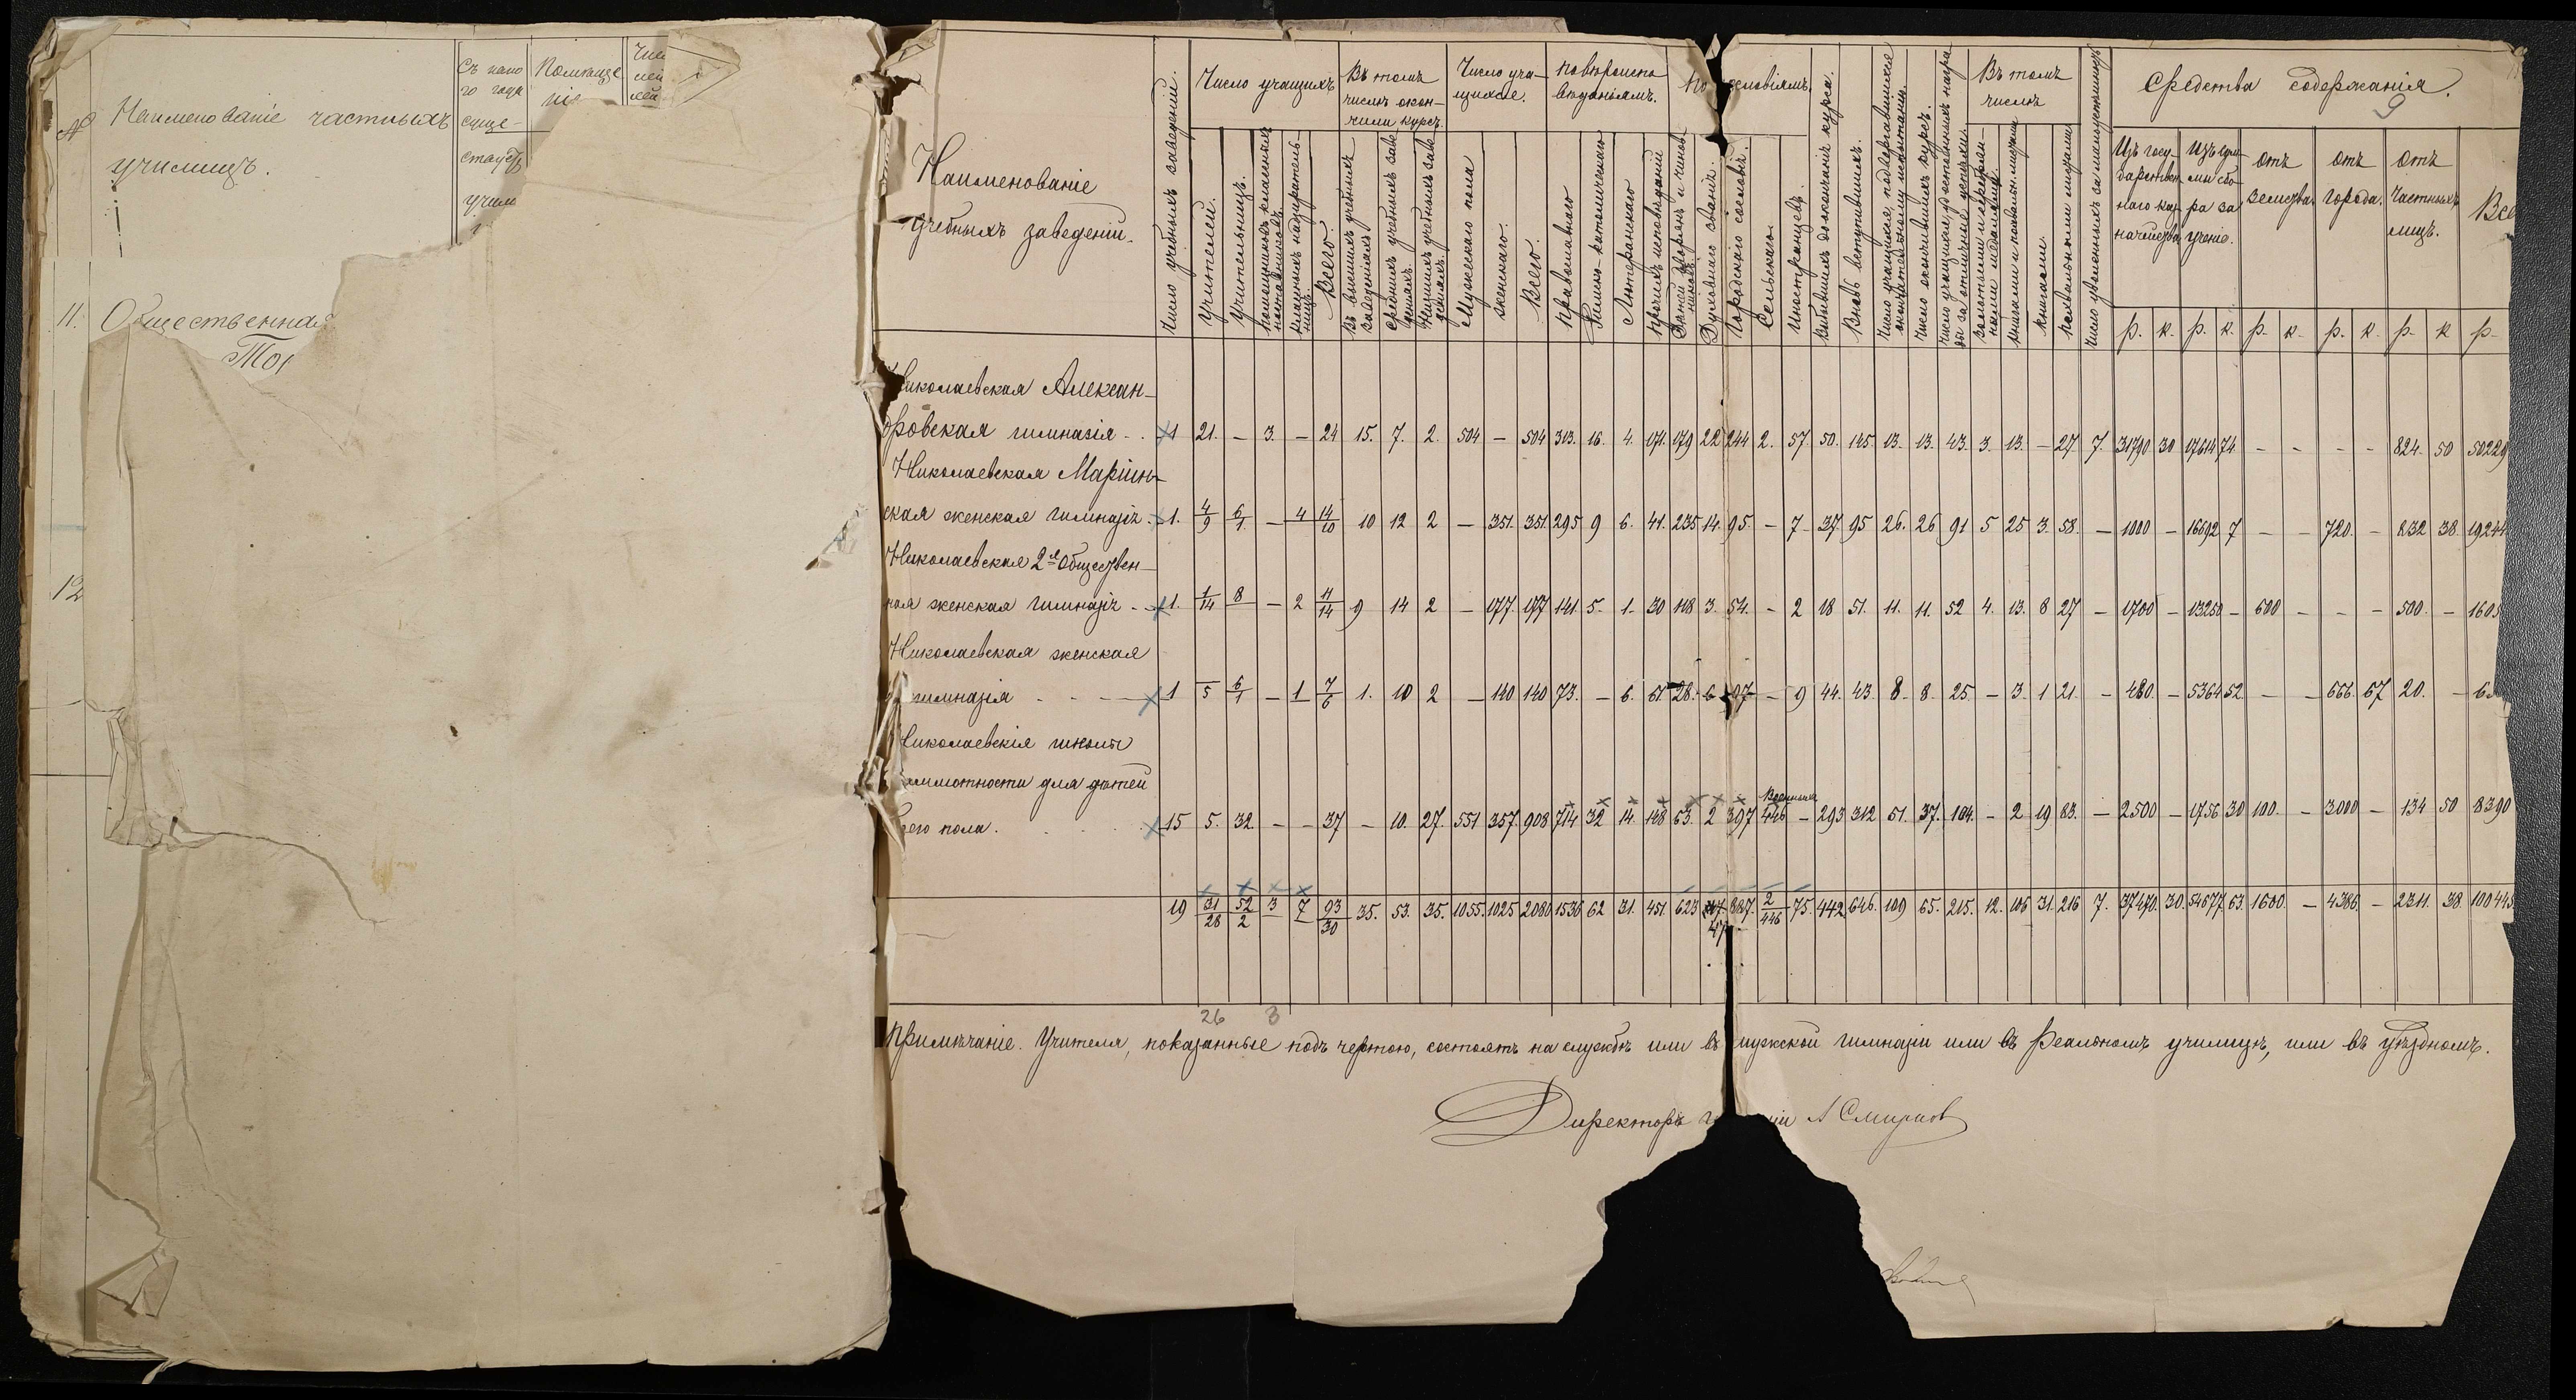 №
Наименованіе частныхъ
училищъ.
Съ како
го года
суще-
Помѣще
11. Общественная
12
Наименованіе
учебныхъ заведеній.
Число учебныхъ заведеній.
Число учащихъ
Учителей.
Учительницъ.
Помощниковъ классныхъ наставниковъ.
Классныхъ надзиратель-
ницъ.
Всего.
Въ томъ
числѣ окон-
чили курсъ.
Въ высшихъ учебныхъ
заведеніяхъ
Среднихъ учебныхъ заве
деніяхъ.
Низшихъ учебныхъ заве
деніяхъ.
Число уча-
щихся.
Мужескаго пола
женскаго.
Всего.
По вѣроиспо
вѣданіямъ.
Православнаго
Римско-католическаго
Лютеранскаго
Прочихъ исповѣданій
По сословіямъ.
Дѣтей дворянъ и чинов
никовъ.
Духовнаго званія.
Городскаго сословія.
Сельскаго.
Иностранцевъ.
Выбывшихъ до окончанія курса.
Вновь вступившихъ.
Число учащихся, подвергавшихся
окончательному испытанію.
Число окончившихъ курсъ.
Число учащихся, удостоенныхъ награ
ды за отличные успѣхи.
Въ томъ
числѣ
Золотыми и серебрян-
ными медалями.
Книгами и похвальн. листами
Книгами.
Похвальными листами
Число уволенныхъ за малоуспѣшность
Средства содержанія.
9
Изъ госу-
дарствен-
наго каз
начейства
Изъ сум-
мы сбо-
ра за
ученіе.
Отъ
земства.
Отъ
города.
Отъ
частныхъ
лицъ.
Все
р. к. р. к. р. к. р. к. р. к р.
Николаевская Алексан-
дровская гимназія - . 1 21. – 3. – 24 15. 7. 2. 504 – 504 313. 16. 4. 171. 179 22 244 2. 57. 50. 145 13. 13. 43. 3. 13. – 27 7. 31790 30 17614 74. – – – – 824. 50 50229
Николаевская Маріин-
ская женская гимназія . 1. 4/9 6/1 – 4 14/10 10 12 2 – 351. 351. 295 9 6. 41. 235 14. 95. – 7 37 95 26. 26 91 5 25 3. 58. – 1000 – 16692 7 – – 720. – 832 38. 19244
Николаевская 2я Обществен-
ная женская гимназія - . 1. 1/14 8 – 2 11/14 9 14 2 – 177. 177 141. 5. 1. 30 118 3. 54. – 2 18 51. 11. 11. 52 4. 13. 8 27 – 1700 – 13250 – 600 – – – 500. – 1605
Николаевская женская
гимназія - - - 1 5 6/1 – 1 7/6 1. 10 2 – 140 140 73. – 6. 61. 28. 6 97 – 9 44. 43. 8. 8. 25. – 3. 1 21. – 480. – 5364 52. – – 666. 67 20. – 6
Николаевскія школы
грамотности для дѣтей
его пола. 15 5. 32. – – 37 – 10. 27. 551 357. 908 714 32 14. 148 63. 2 397 446 – 293 312 51. 37. 104. – 2 19 83. – 2500 – 1756 30 100. – 3000 – 134 50 8390
19 31/28 52/2 3 7 93/30 35. 53. 35. 1055. 1025 2080 1536 62 31. 451. 623 47 887. 2/446 75. 442. 646. 109 65. 215. 12. 106 31. 216 7. 37470. 30. 54677 63. 1600. – 4386. – 2311. 38. 100445
26 3
Примѣчаніе. Учителя, показанные подъ чертою, состоятъ на службѣ или въ мужской гимназіи или въ Реальномъ училищѣ, или въ Уѣздномъ.
Директоръ А Смирнов